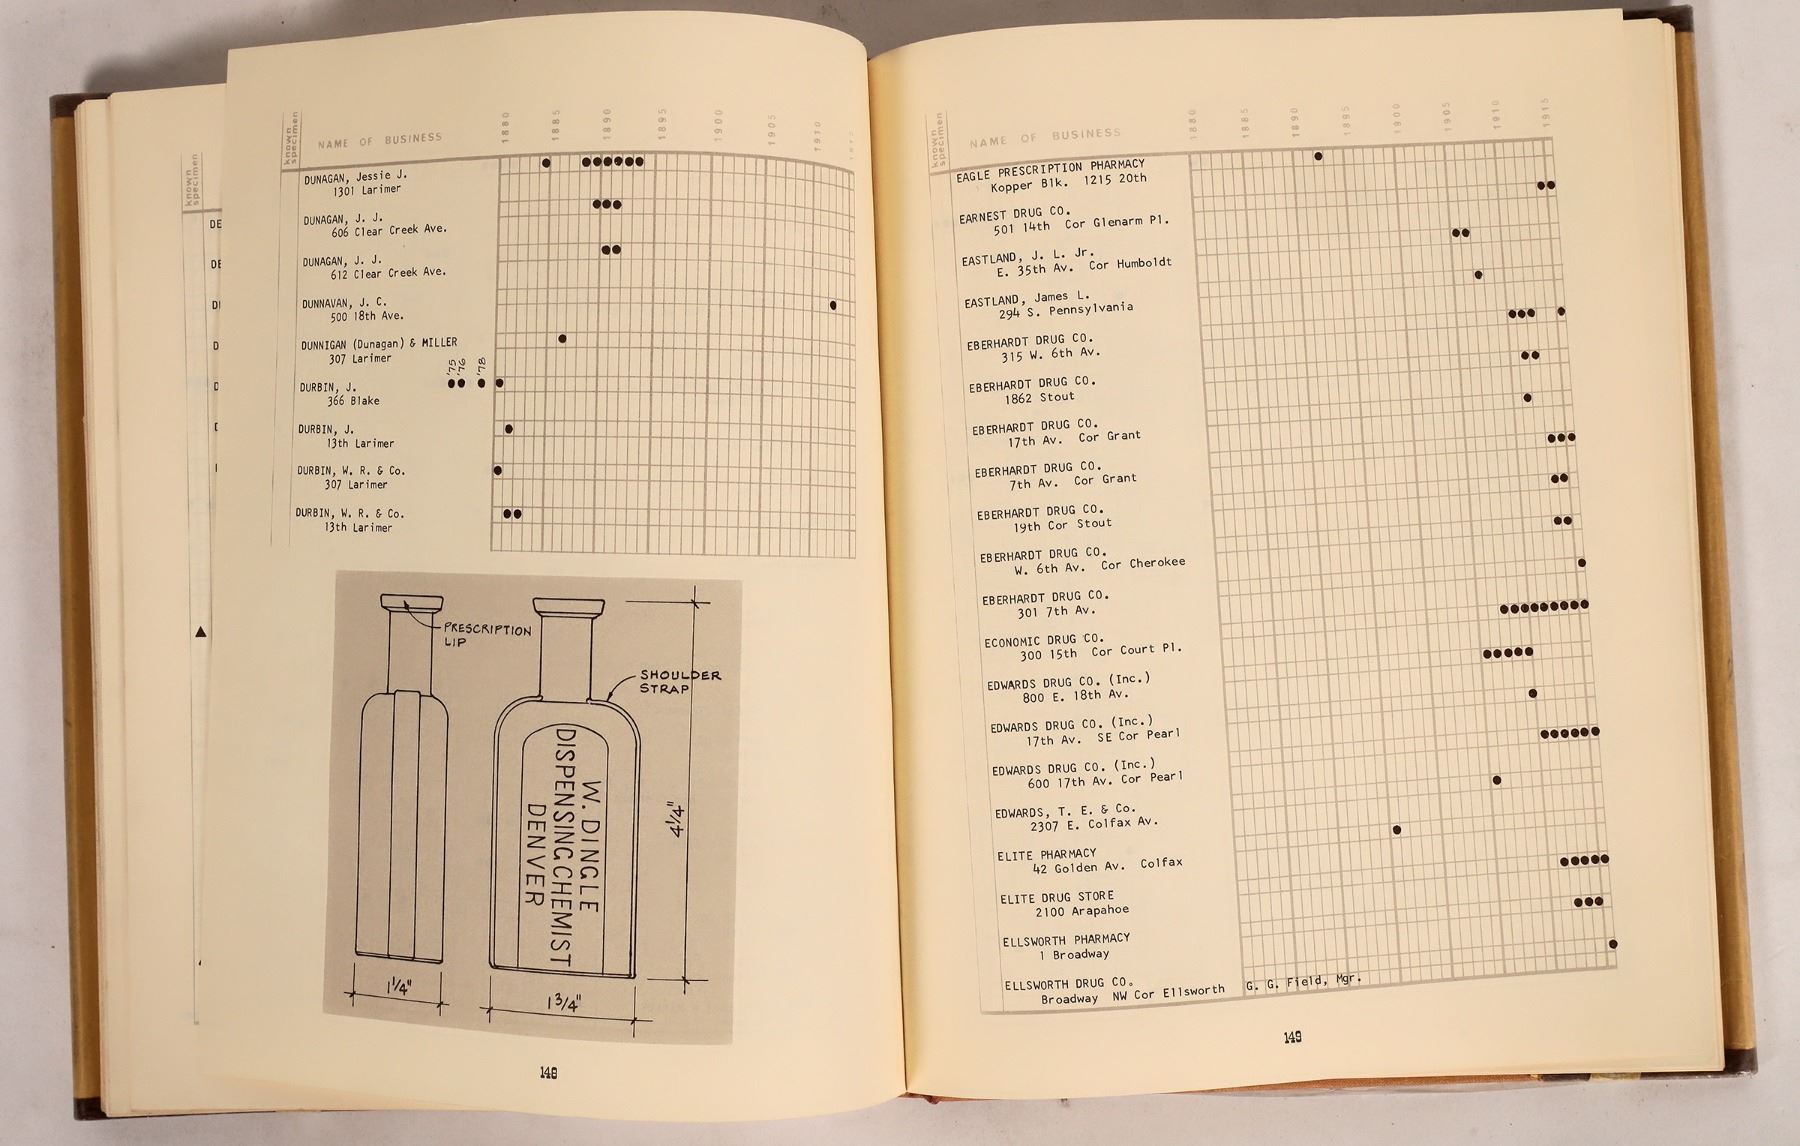 known
specimen
DE
DE
DI
D
D
known
specimen
NAME OF BUSINESS
1880
1885
1890
1895
1900
1905
1910
1915
DUNAGAN, Jessie J.
1301 Larimer
DUNAGAN, J. J.
606 Clear Creek Ave.
DUNAGAN, J. J.
612 Clear Creek Ave.
DUNNAVAN, J. C.
500 18th Ave.
DUNNIGAN (Dunagan) & MILLER
307 Larimer
'75
'76
'78
DURBIN, J.
366 Blake
DURBIN, J.
13th Larimer
DURBIN, W. R. & Co.
307 Larimer
DURBIN, W. R. & Co.
13th Larimer
PRESCRIPTION
LIP
SHOULDER
STRAP
W. DINGLE
DISPENSING CHEMIST
DENVER
4¼"
1¼"
1¾"
148
known
specimen
NAME OF BUSINESS
1880
1885
1890
1895
1900
1905
1910
1915
EAGLE PRESCRIPTION PHARMACY
Kopper Blk. 1215 20th
EARNEST DRUG CO.
501 14th Cor Glenarm Pl.
EASTLAND, J. L. Jr.
E. 35th Av. Cor Humboldt
EASTLAND, James L.
294 S. Pennsylvania
EBERHARDT DRUG CO.
315 W. 6th Av.
EBERHARDT DRUG CO.
1862 Stout
EBERHARDT DRUG CO.
17th Av. Cor Grant
EBERHARDT DRUG CO.
7th Av. Cor Grant
EBERHARDT DRUG CO.
19th Cor Stout
EBERHARDT DRUG CO.
W. 6th Av. Cor Cherokee
EBERHARDT DRUG CO.
301 7th Av.
ECONOMIC DRUG CO.
300 15th Cor Court Pl.
EDWARDS DRUG CO. (Inc.)
800 E. 18th Av.
EDWARDS DRUG CO. (Inc.)
17th Av. SE Cor Pearl
EDWARDS DRUG CO. (Inc.)
600 17th Av. Cor Pearl
EDWARDS, T. E. & Co.
2307 E. Colfax Av.
ELITE PHARMACY
42 Golden Av. Colfax
ELITE DRUG STORE
2100 Arapahoe
ELLSWORTH PHARMACY
1 Broadway
ELLSWORTH DRUG CO.
Broadway NW Cor Ellsworth G. G. Field, Mgr.
149